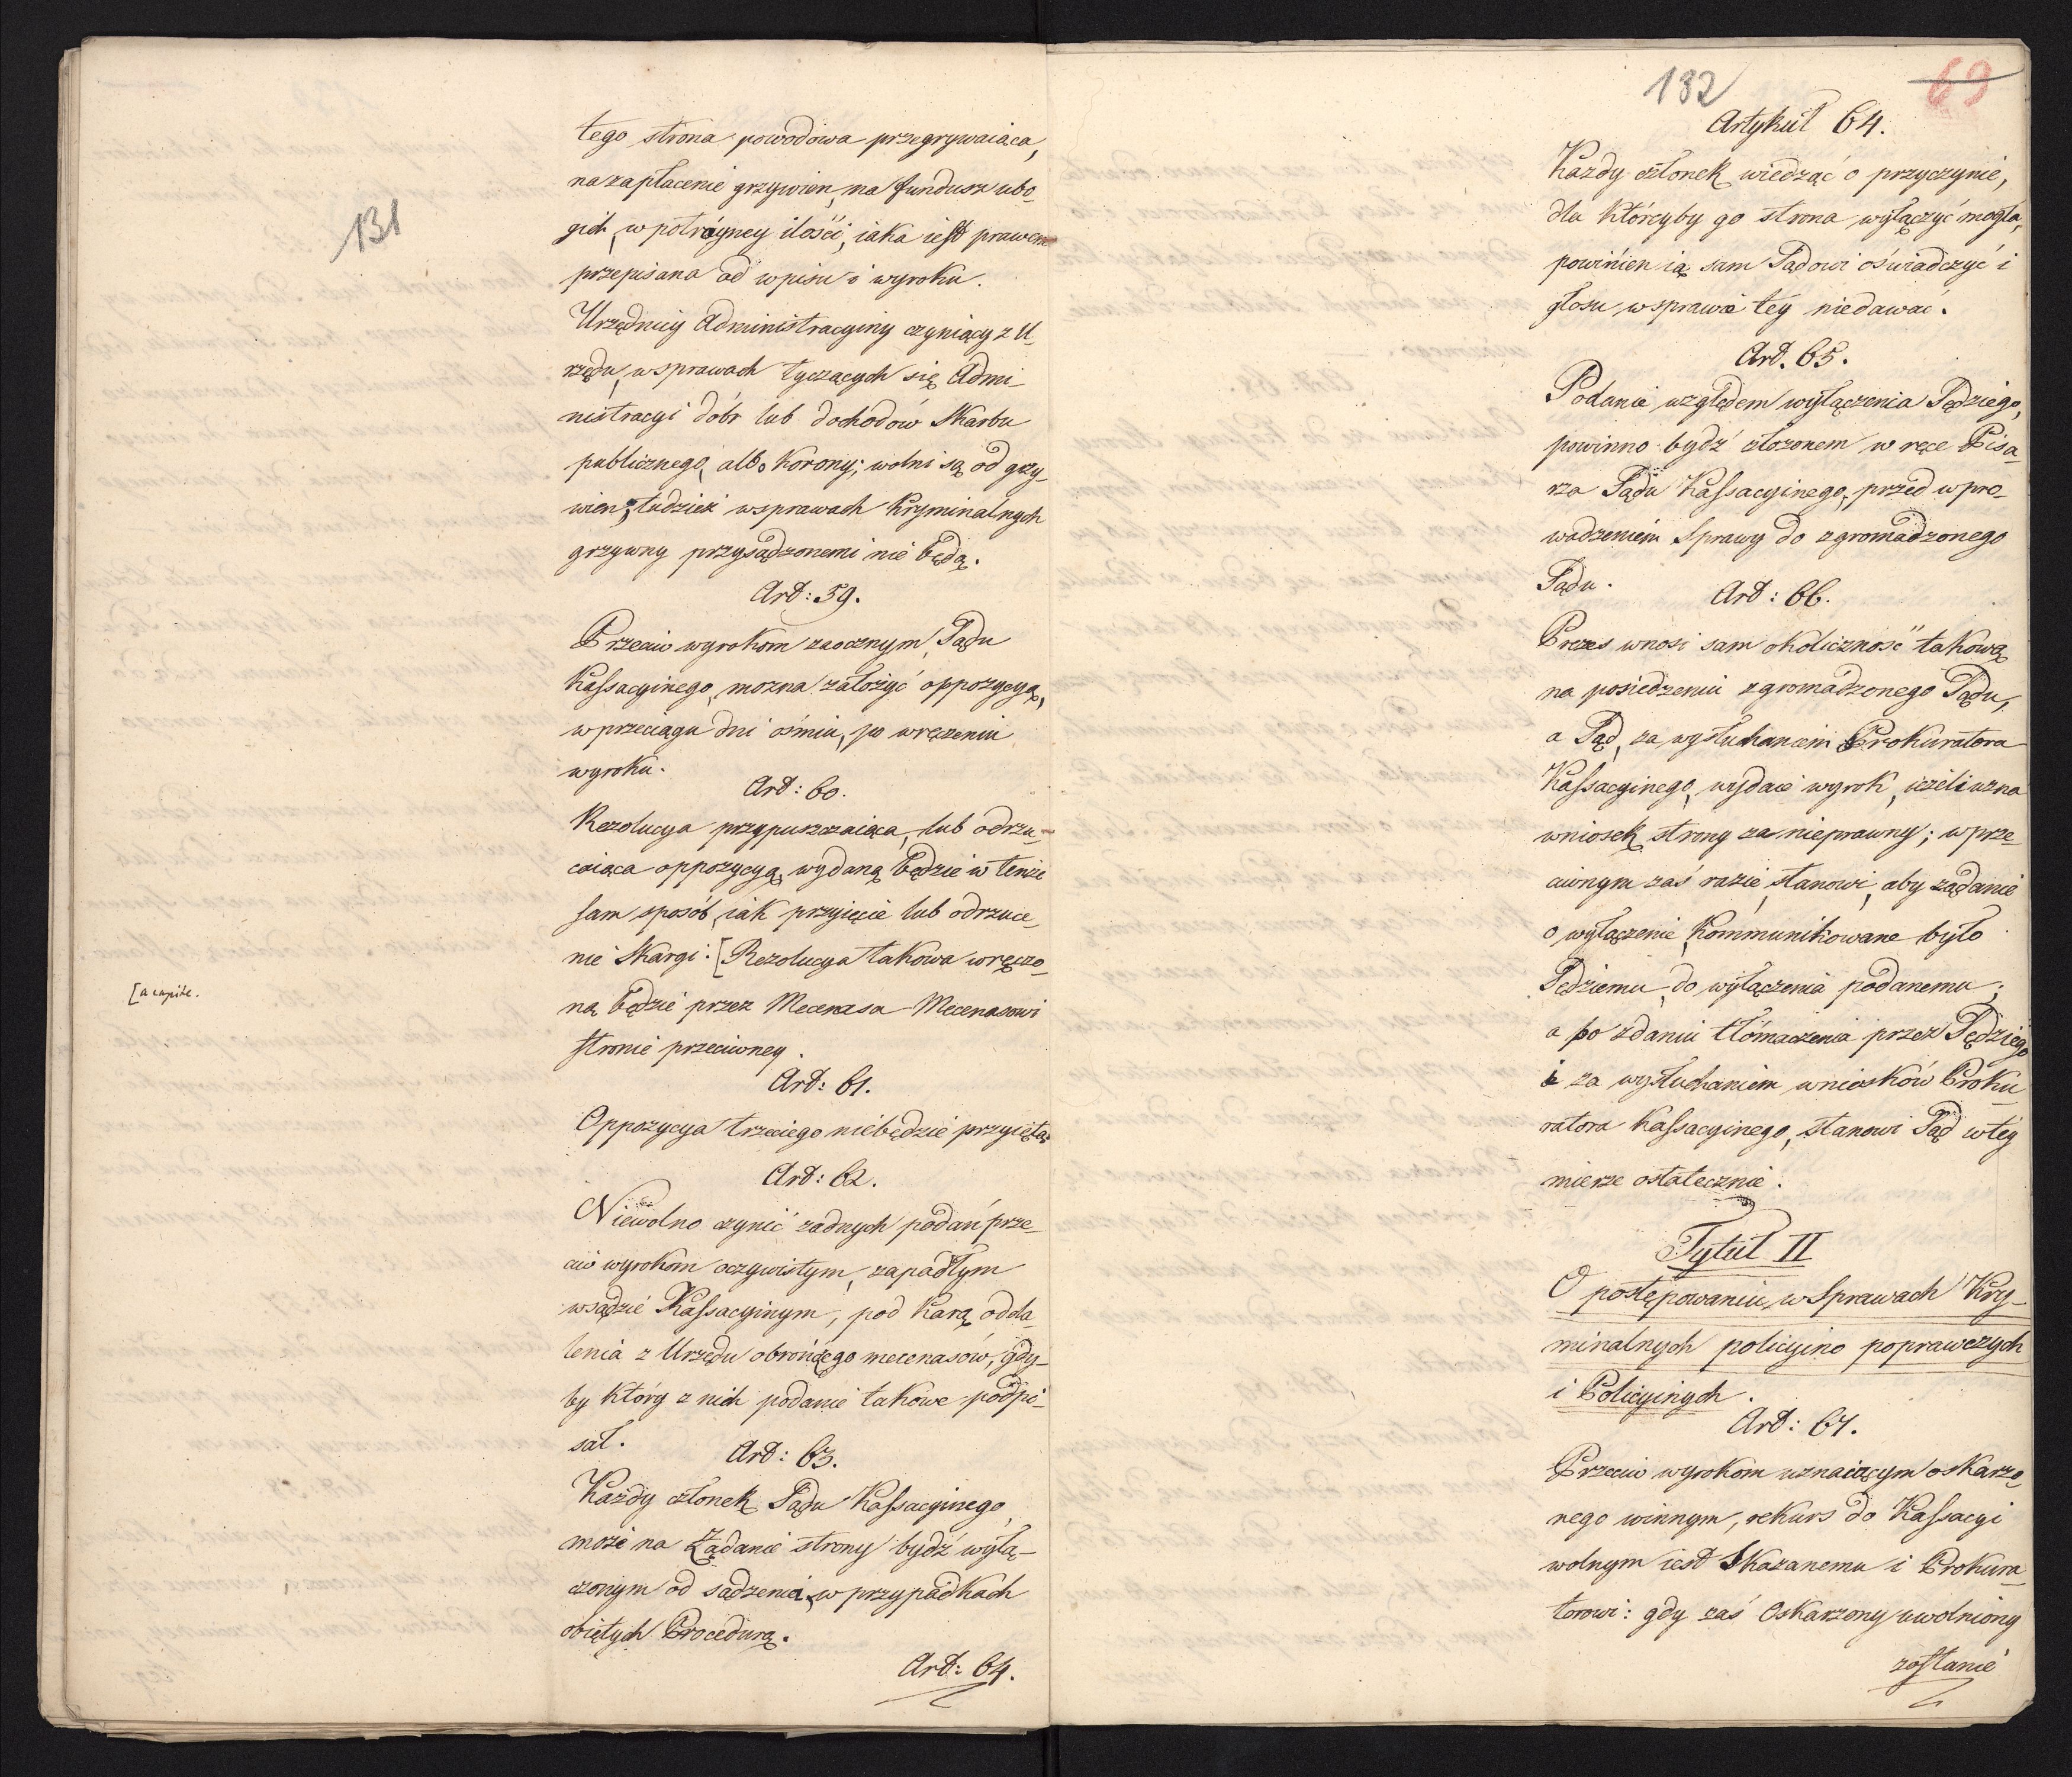 131
tego strona powodowa przegrywaiąca,
na zapłacenie grzywien, na fundusz ubo-
gich, w potróyney ilości, iaka iest prawem
przepisana od wpisu i wyroku.
Urzędnicy Administracyiny czyniący z U-
rzędu, w sprawach tyczących się Admi-
nistracyi dóbr lub dochodów Skarbu
publicznego, albo Korony; wolni są od grzy-
wien, tudzież w sprawach Kryminalnych
grzywny przysądzonemi nie będą.
Art: 59.
Przeciw wyrokom zaocznym, Sądu
Kassacyinego, mozna założyć oppozycyą,
w przeciągu dni ośmiu, po wręczeniu
wyroku.
Art: 60.
Rezolucya przypuszczaiąca, lub odrzu-
caiąca oppozycyą, wydaną będzie w tenże
sam sposób, iak przyięcie lub odrzuce-
nie Skargi: [Rezolucya takowa wręczo-
[a capite.
ną będzie przez Mecenasa Mecenasowi
stronie przeciwney.
Art: 61.
Oppozycya trzeciego niebędzie przyiętą
Art: 62.
Niewolno czynić żadnych podań prze-
ciw wyrokom oczywistym, zapadłym
w sądzie Kassacyinym, pod karą odda-
lenia z Urzędu obrończego mecenasów, gdy-
by który z nich podanie takowe podpi-
sał.
Art: 63.
Każdy członek Sądu Kassacyinego,
może na Żądanie strony bydź wyłą-
czonym od sądzenia, w przypadkach
obiętych Procedurą.
Art: 64.
132
69
Artykuł 64.
Każdy członek wiedząć o przyczynie,
dla którcyby go strona wyłączyć mogła,
powinien ią sam Sądowi oświadczyć i
głosu w sprawie téy niedawać.
Art. 65.
Podanie względem wyłączenia Sędziego,
powinno bydź złożonem w ręce Pisa-
rza Sądu Kassacyinego, przed wpro-
wadzeniem Sprawy do zgromadzonego
Sądu.
Art: 66.
Prezes wnosi sam okoliczność takową
na posiedzeniu zgromadzonego Sądu,
a Sąd, za wysłuchaniem Prokuratora
Kassacyinego, wydaie wyrok, ieżeli uzna
wniosek strony za nieprawny; w prze-
ciwnym zaś razie, stanowi, aby żądanie
o wyłączenie, Kommunikowane było
Sędziemu, do wyłączenia podanemu;
a po zdaniu tłómaczenia przez Sędziego
i za wysłuchaniem wniosków Proku-
ratora Kassacyinego, stanowi Sąd w téy
mierze ostatecznie.
Tytuł II
O postępowaniu w Sprawach Kry-
minalnych policyino poprawczych
i Policyinych.
Art: 67.
Przeciw wyrokom uznaiącym oskarżo-
nego winnym, rekurs do Kassacyi
wolnym iest Skazanemu i Prokura-
torowi: gdy zaś Oskarżony uwolniony
zostanie